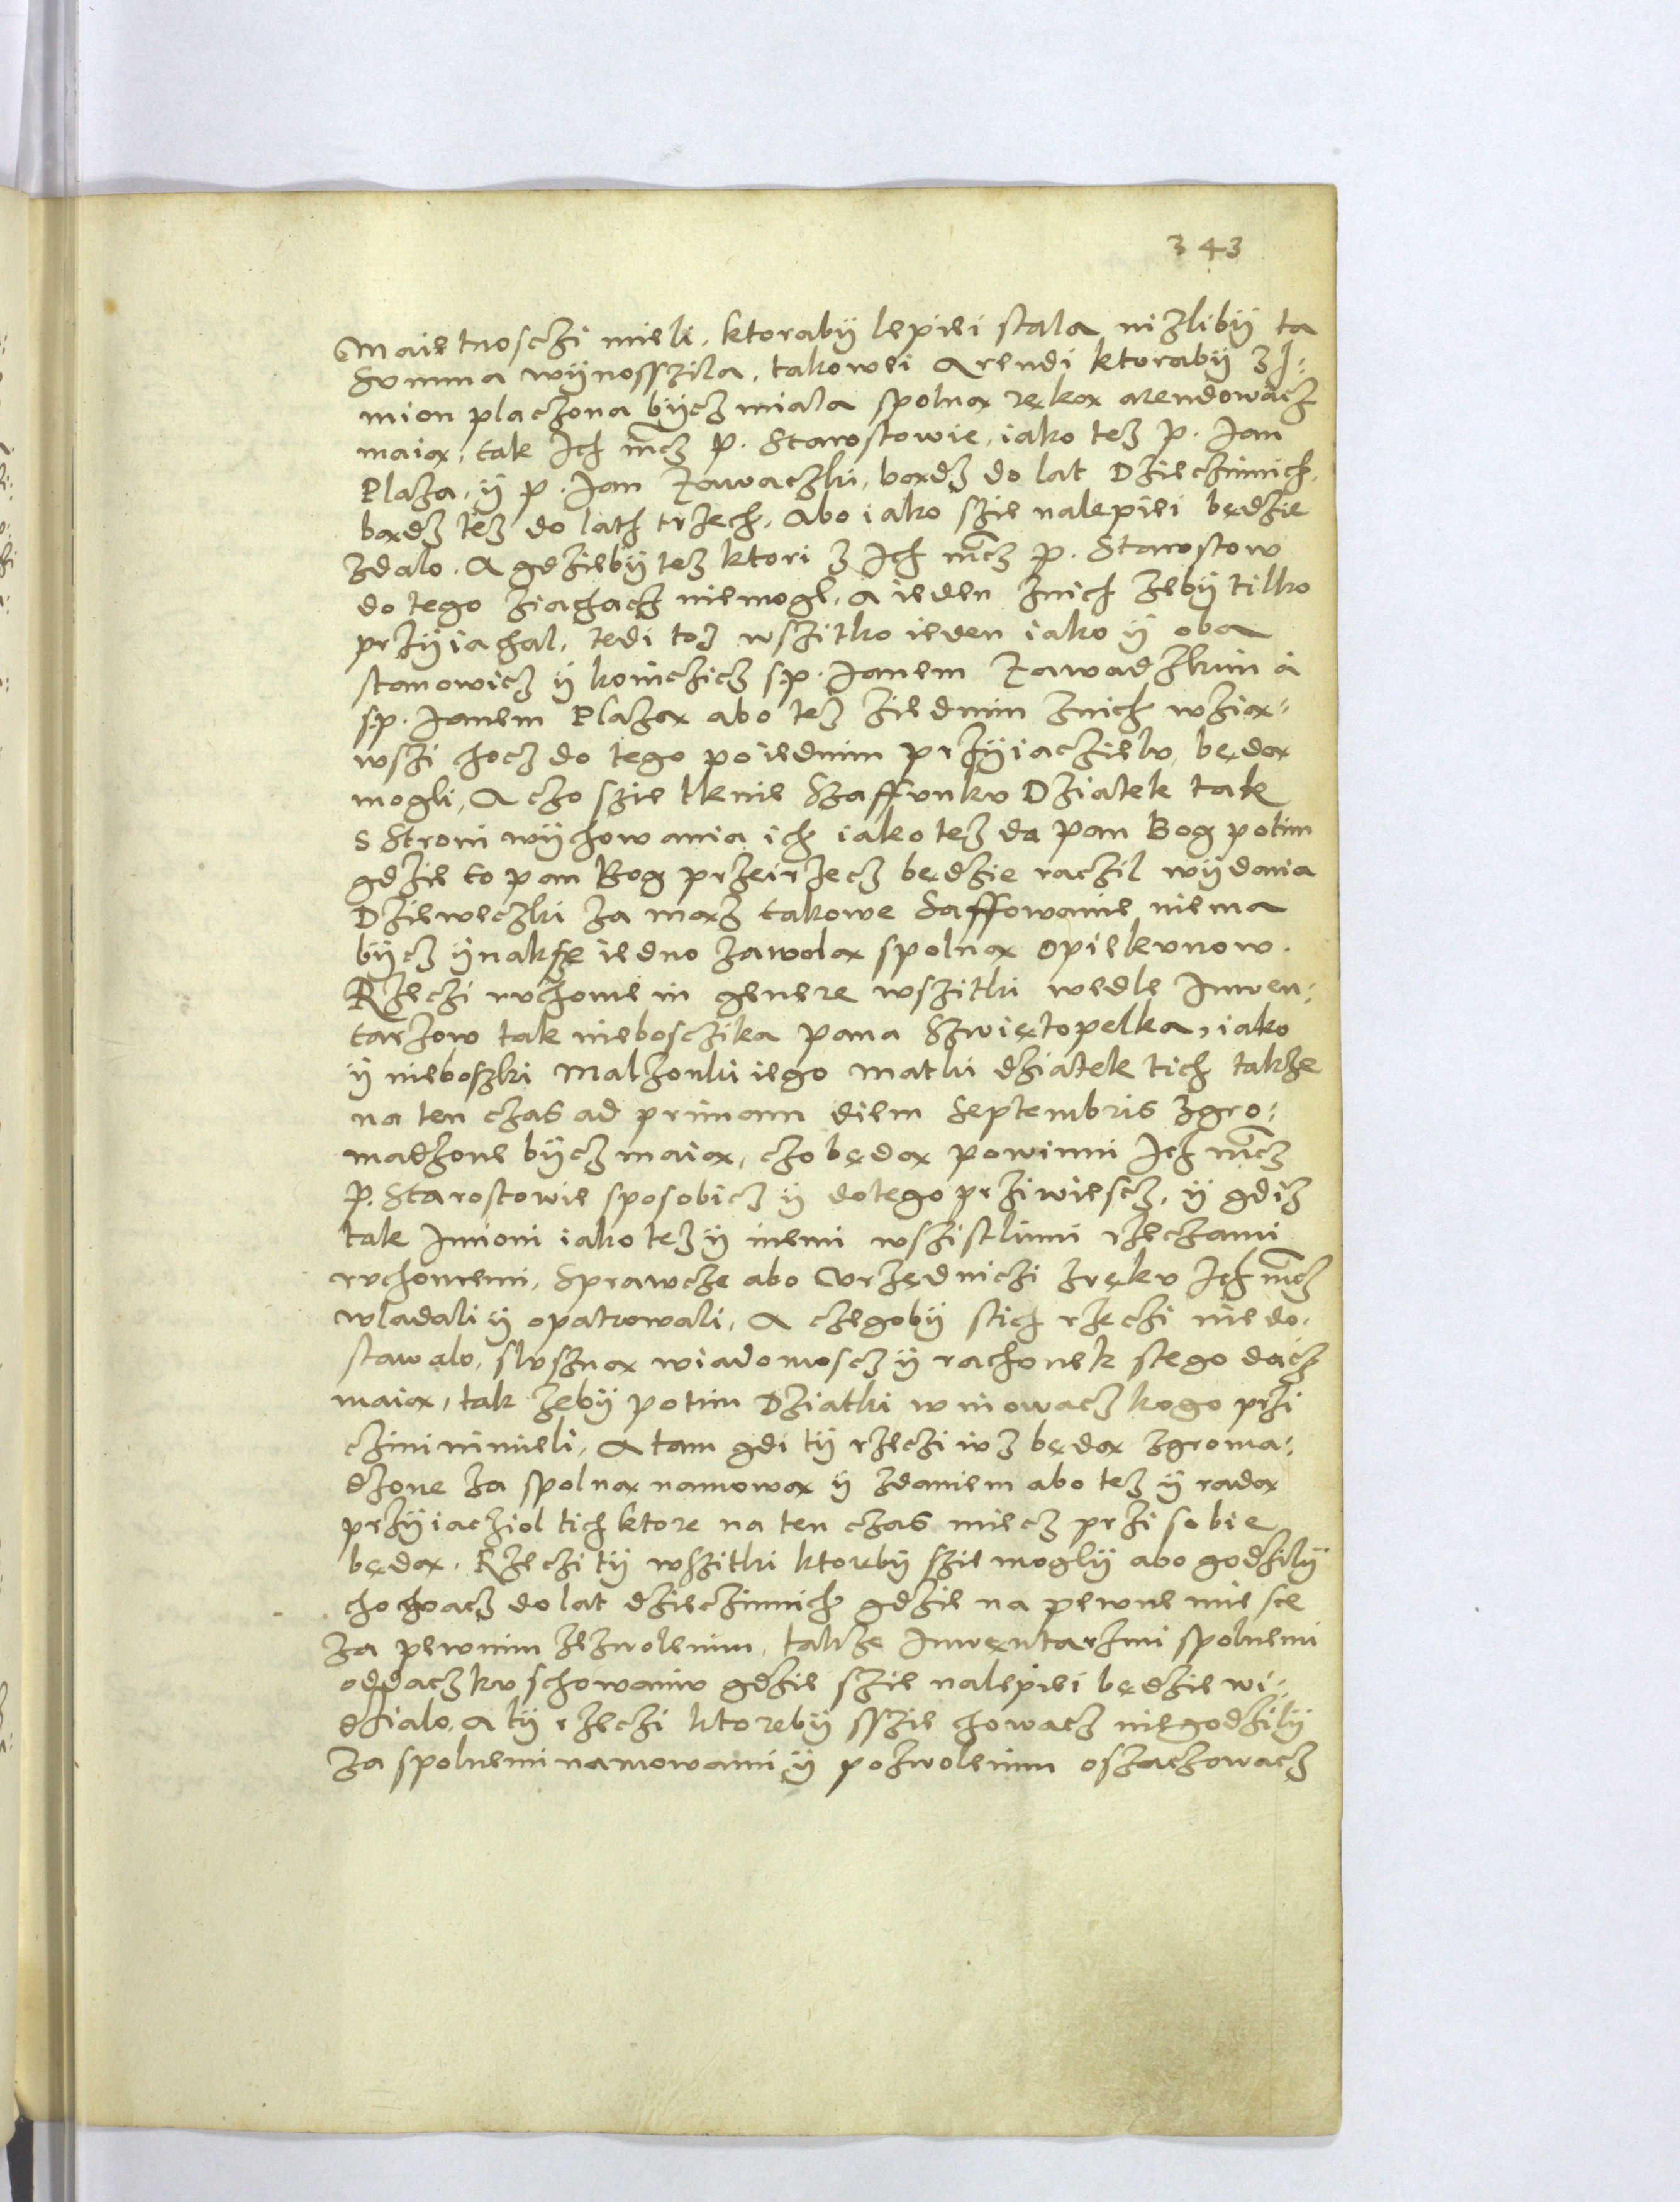 343
Maietnosczi mieli, ktorabÿ lepiei stala nizlibÿ ta
Summa wÿnosszila, takowei Arendi ktorabÿ z I=
mion placzona bÿcz miala spolną ręką arendowacz
maią, tak Ich mcz p. Starostowie, iako tez p. Jan
Plaza, ÿ p. Jan Zawaczki, bądz do lat Dzieczinnich,
bądz tez do lath trzech, Abo iako szie nalepiei będzie
zdalo. A gdziebÿ tez ktori z Ich mcz p. Starostow
do tego ziachacz niemogl, a ieden znich zebÿ tilko
przÿiachal, tedi toz wszitko ieden iako ÿ oba
stanowicz ÿ koinczicz sp. Janem Zawadzkim a
sp. Janem Plazą abo tez ziednim znich wzią=
wszi chocz do tego poiednim przÿiaczielu, będą
mogli, A czo szie tknie Szaffunku Dziatek tak
s Stroni wÿchowania ich iako tez da Pan Bog potim
gdzie to pan Bog przeirzecz będzie raczil wÿdania
Dzieweczki za mąz takowe Saffowanie niema
bÿcz ÿnaksze iedno zawolą spolną Opiekunow.
Rzeczi ruchome in genere wszitki wedle Inwen=
tarzow tak nieboscżika pana Szwiętopelka, iako
ÿ nieboszki Malzonki iego matki dziatek tich takze
na ten czas ad primam diem Septembris zgro=
madzone bÿcz maią, czo będą powinni Ich mcz
p. Starostowie sposobicz ÿ dotego prziwiescz, ÿ gdiz
tak Imioni iako tez ÿ inemi wszistkimi rzeczami
ruchomemi, Sprawcze abo Urzędniczi zręku Ich mcz
wladali ÿ opatrowali, A czegobÿ stich rzeczi niedo=
stawalo, sluszną wiadomoscz ÿ rachonek stego dacz
maią, tak zebÿ potim Dziatki winowacz kogo przi
czini nimieli, A tam gdi tÿ rzeczi iuz będą zgroma=
dzone za spolną namową ÿ zdaniem abo tez ÿ radą
przÿiacziol tich ktore na ten czas miecz przi sobie
będą. Rzeczi tÿ wszitki ktorebÿ szie moglÿ abo godzilÿ
chowacz do lat dzieczinnich gdzie na pewne miesce
za pewnim zezwolenim, takze Inwentarzmi spolnemi
oddacz ku schowaniu gdzie szie nalepiei będzie wi=
dzialo, a tÿ rzeczi ktorebÿ sszie chowacz niegodzilÿ
za spolnemi namowami ÿ pozwolenim oszaczowacz